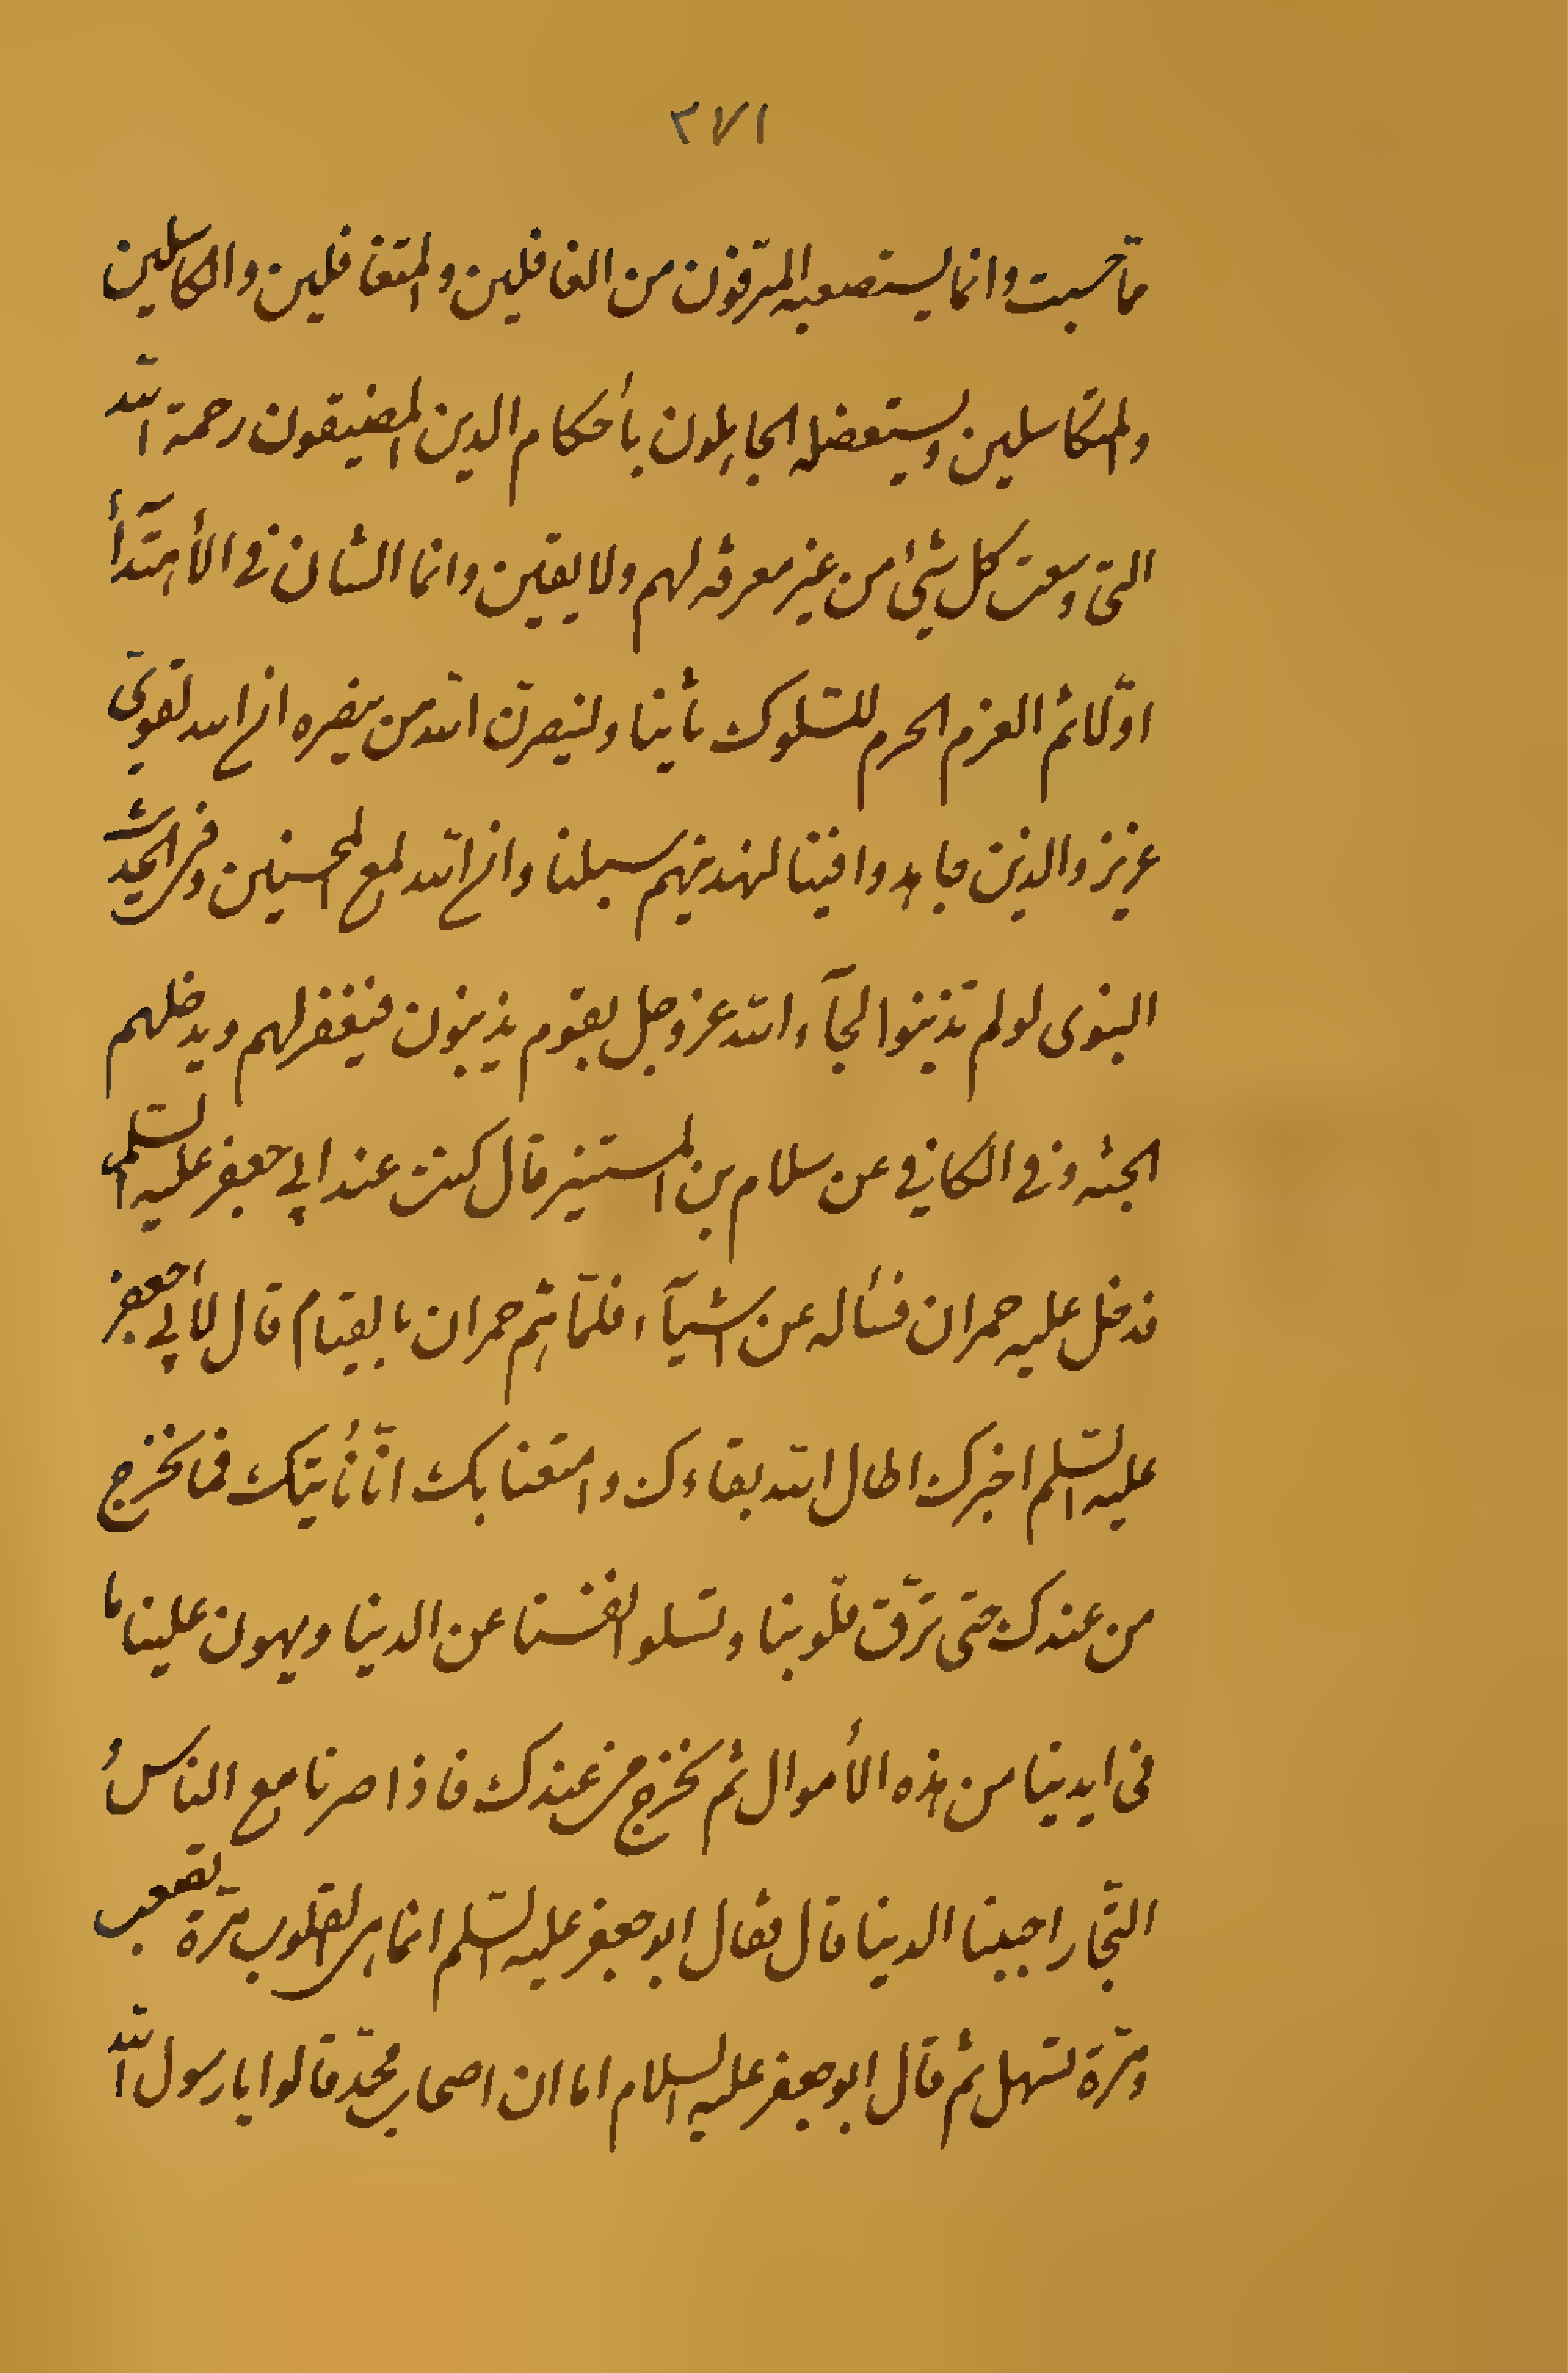 ٣٧١
ما حسبت وانما يستصعبه المترفون من الغافلين والمتغافلين والكاسلين
والمتكاسلين ويستعضله الجاهلون بأحكام الدين المضيقون رحمة الله
التى وسعت كل شيء من غير معرفة لهم ولا يقين وانما الشان فى الأهتدآء
اوّلا ثم العزم الحزم للسّلوك ثانيا ولينصرنّ الله من ينصره ان الله لقوىّ
عزيز والذين جاهدوا فينا لنهدينهم سبلنا وان الله لمع المحسنين وفى الحديث
النبوى لو لم تذنبوا لجآء الله عز وجل بقوم يذنبون فيغفر لهم ويدخلهم
الجنة وفى الكافي عن سلام بن المستنير قال كنت عند ابي جعفر عليه السّلم
فدخل عليه حمران فسأله عن اشيآء فلمّا همّ حمران بالقيام قال لأبي جعفر
عليه السّلم اخبرك اطال الله بقاءك وامتعنا بك انّا نأتيك فما نخرج
من عندك حتى ترّق قلوبنا وتسلو انفسنا عن الدنيا ويهون علينا ما
فى ايدينا من هذه الأموال ثم نخرج من عندك فاذا صرنا مع الناس و
التجّار احببنا الدنيا قال فقال ابو جعفر عليه السّلم انما هى القلوب مرّة تصعب
ومرّة تسهل ثم قال ابو جعفر عليه السلام اما ان اصحاب محمّد قالوا يا رسول الله